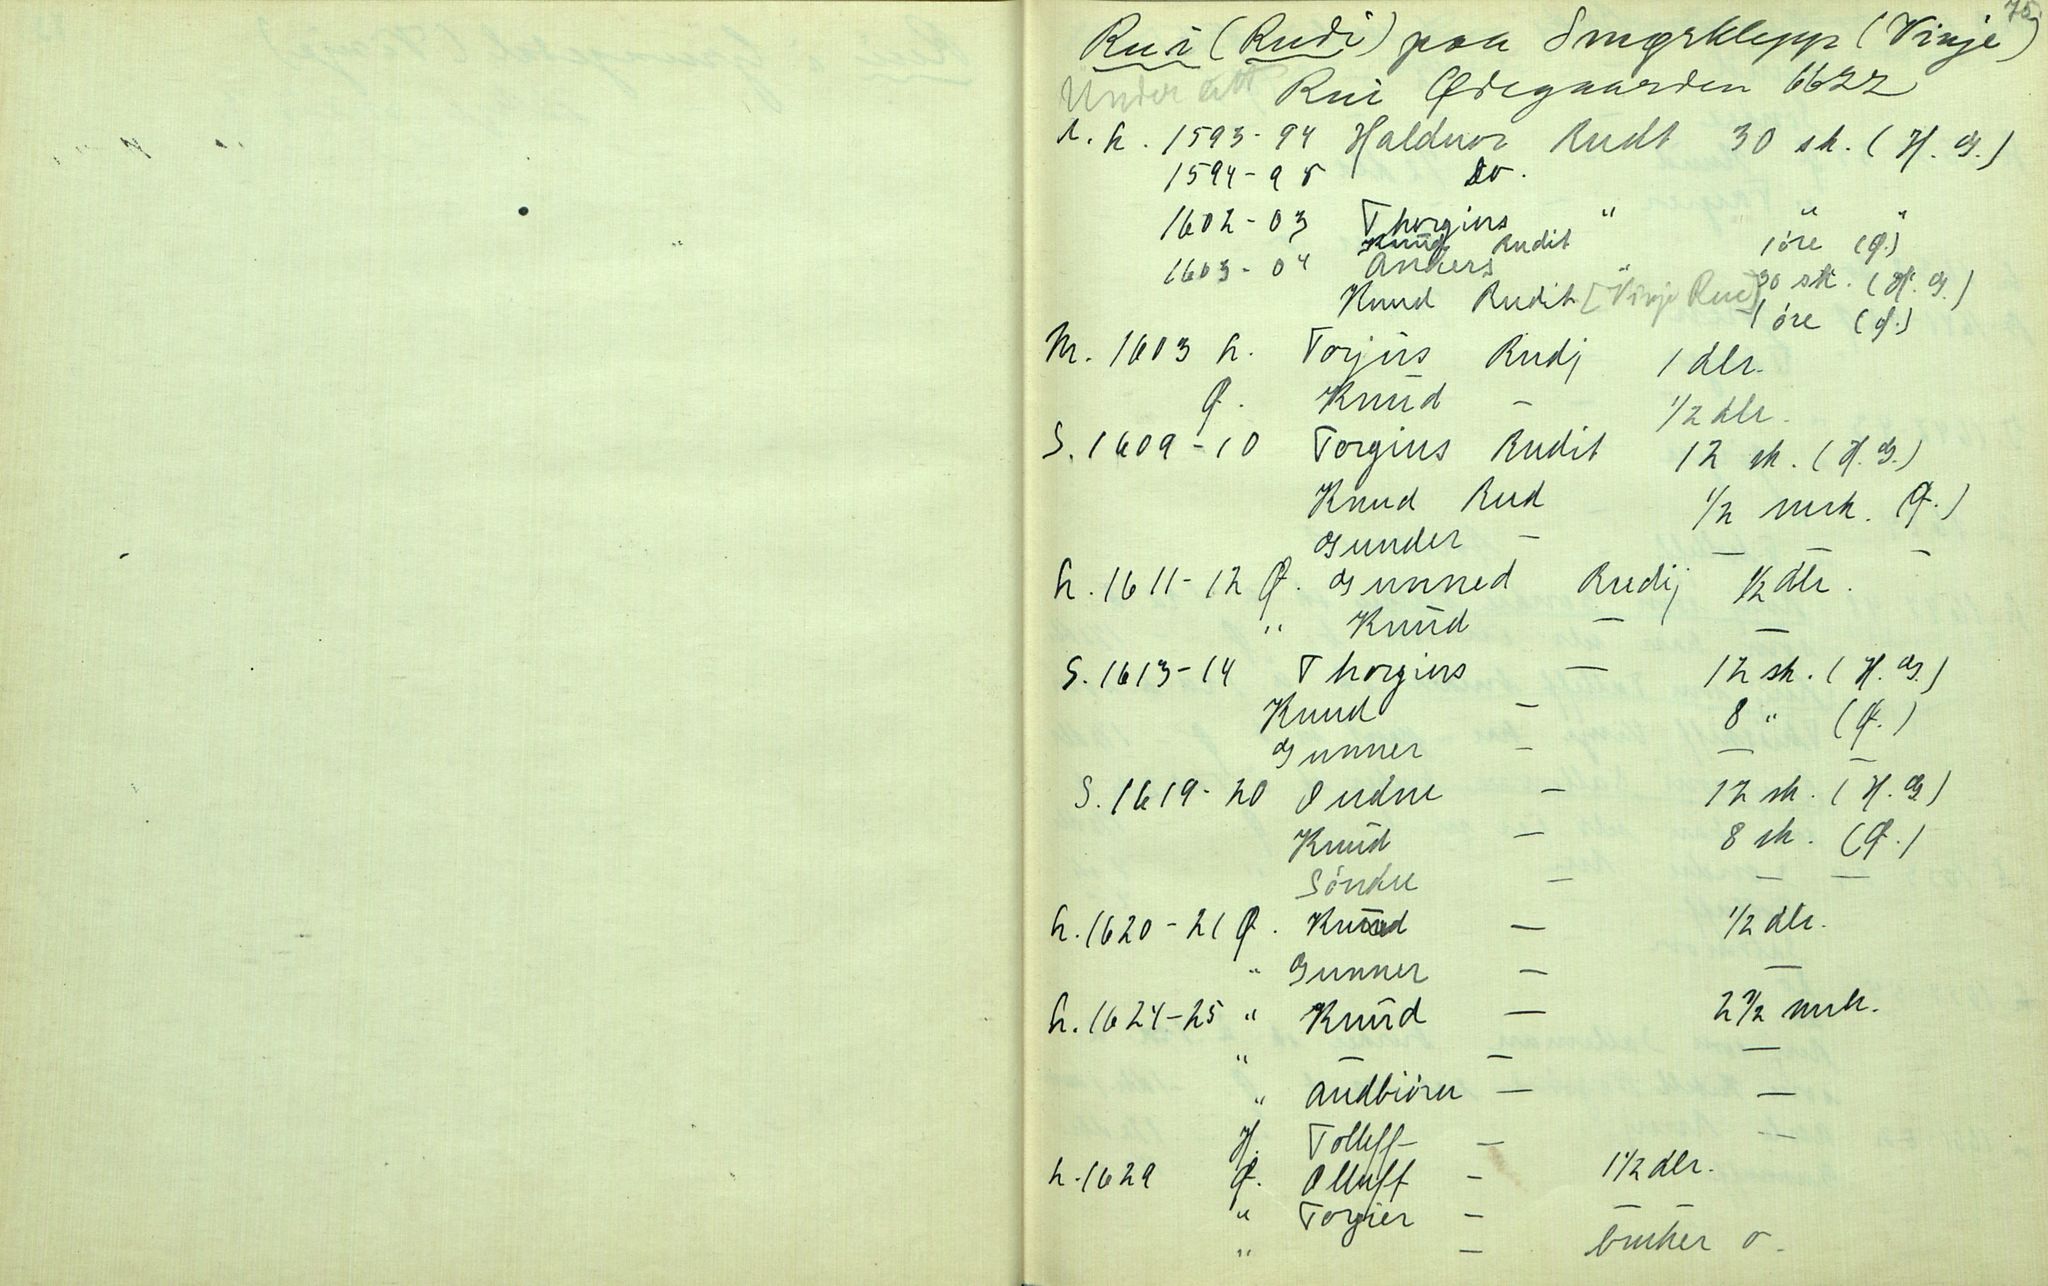 75
Rui (Rudi) paa Smørklepp (Vinje)
Under ett Rui Ødegaarden 6622
L. h. 1593-94 Haldnor Rudt 30 sk. (H. G.)
1594-95 Do.
1602-03 Thorgius " " "
Knud Rudit 1 öre (Ø.)
1603-04 Anders " 30 sk. (H. G.)
Knud Rudit [Vinje Rue] 1 öre (Ø.)
M. 1603 h. Torjus Rudj 1 dlr.
Ø. Knud — 1/2 dlr.
S. 1609-10 Torgius Rudit 12 sk. (H. G.)
Knud Rud 1/2 mrk. (Ø.)
Gunder — — — —
h. 1611-12 Ø. Gunned Rudij 1/2 dlr.
" Knud — —
S. 1613-14 Thorgius — 12 sk. (H. G.)
Knud — 8 " (Ø.)
Gunner — — —
S. 1619-20 Oudne — 12 sk. (H. G.)
Knud — 8 sk. (Ø.)
Söndre — — —
h. 1620-21 Ø. Knud — 1/2 dlr.
" Gunner — —
h. 1624-25 " Knud — 2 1/2 mrk.
" — — —
" Audbiörn — —
H. Tolleff — —
h. 1629 Ø. Olluff — 1 1/2 dlr.
" Torgier — — —
" — bruker o.